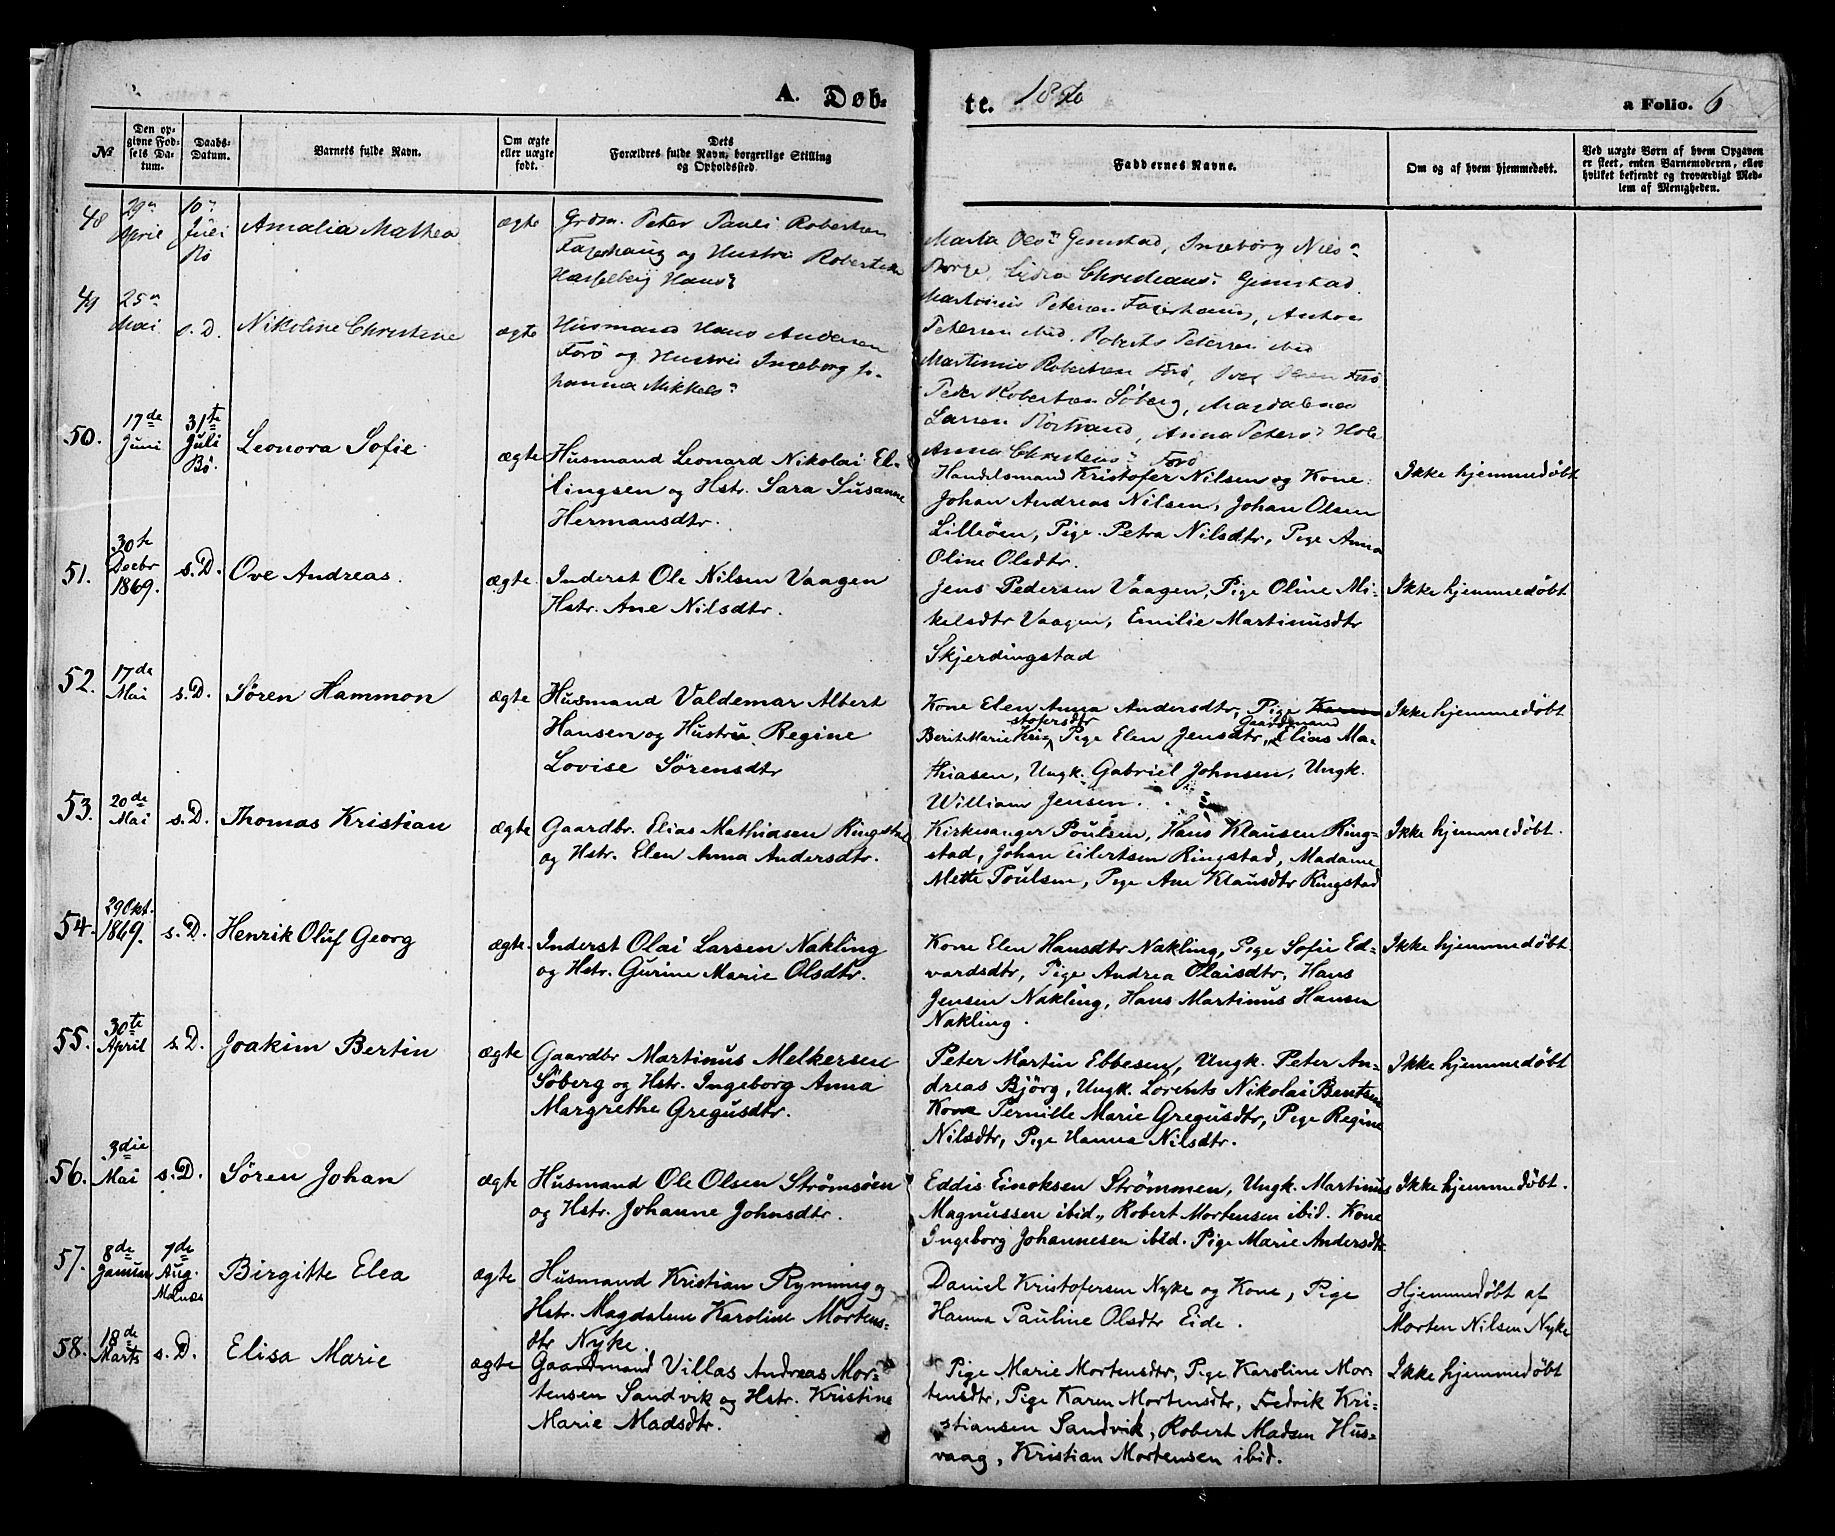 A. Døb-
te. 1870
a Folio. 6
№
Den op-
givne Fød-
sels Da-
tum.
Daabs-
Datum.
Barnets fulde Navn.
Om ægte
eller uægte
født.
Dets
Forældres fulde Navn, borgerlige Stilling
og Opholdssted.
Faddernes Navne.
Om og af hvem hjemmedøbt.
Ved uægte Børn af hvem Opgaven
er skeet, enten Barnemoderen, eller
hvilket bekjendt og troværdigt Med-
lem af Menigheden.
48
29
April
10
Juli
Bø
Amalia Mathea
ægte
Grdm. Peter Pauli Robertsen
Fagerhaug og Hustru
Hans
Marta Ols Gimstad, Ingeborg Niels
Børge, Christians Gimstad
Martinus Petersen Fagerhaug, Anton
Petersen ibid. Roberts Petersen ibid
49
25
Mai
s. D.
Nikoline Christine
ægte
Husmand Hans Andersen
Forø og Hustru Ingeborg Jo-
hanna Mikkels
Martinus Robertsen Forø, Forø
Peder Robertsen Søberg, Magdalena
Larsen Rørstrand, Anna Peters
Anna Christens Forø
50.
17de
Juni
31te
Juli
Bø.
Leonora Sofie.
ægte
Husmand Leonard Nikolai El-
lingsen og Hstr. Sara Susanne
Hermansdtr.
Handelsmand Kristofer Nilsen og Kone.
Johan Andreas Nilsen, Johan Olsen
Lilleöen, Pige Petra Nilsdtr, Pige Anna
Oline Olsdtr.
Ikke hjemmedöbt
51.
30te
Decbr
1869.
s. D.
Ove Andreas.
ægte.
Inderst Ole Nilsen Vaagen
Hstr. Ane Nilsdtr.
Jens Pedersen Vaagen, Pige Oline Mi-
kelsdtr Vaagen, Emilie Martinusdtr
Skjerdingstad
Ikke hjemmedöbt
52.
17de
Mai
s. D.
Sören Hammon
ægte
Husmand Valdemar Albert
Hansen og Hustru Regine
Lovise Sörensdtr
Kone Elen Anna Andersdtr, Pige
stofersdtr Gaardmand
Berit Marie Kri, Pige Elen Jensdtr, Elias Ma-
thiasen, Ungk. Gabriel Johnsen, Ungk.
William Jensen.
Ikke hjemmedöbt
53.
20de
Mai
s. D.
Thomas Kristian
ægte
Gaardbr. Elias Mathiasen Ringstad
og Hstr. Elen Anna Andersdtr.
Kirkesanger Poulsen, Hans Klausen Ring-
stad, Johan Eilertsen Ringstad, Madame
Mette Poulsen, Pige Ane Klausdtr Ringstad
Ikke hjemmedöbt.
54.
29 Okt.
1869.
s. D.
Henrik Oluf Georg
ægte.
Inderst Olai Larsen Nakling
og Hstr. Gurine Marie Olsdtr.
Kone Elen Hansdtr Nakling, Pige Sofie Ed-
vardsdtr, Pige Andrea Olaisdtr, Hans
Jensen Nakling, Hans Martinus Hansen
Nakling.
Ikke hjemmedöbt
55.
30te
April
s. D.
Joakim Bertin
ægte
Gaardbr Martinus Melkersen
Söberg og Hstr. Ingeborg Anna
Margrethe Gregusdtr.
Peter Martin Ebbesen, Ungk. Peter An-
dreas Björg, Ungk. Lorents Nikolai Bentsen
Kone Pernille Marie Gregusdtr, Pige Regine
Nilsdtr, Pige Hanna Nilsdtr.
Ikke hjemmedöbt
56.
3die
Mai
s. D.
Sören Johan
ægte
Husmand Ole Olsen Strömsöen
og Hstr. Johanne Johnsdtr.
Eddis Einoksen Strömmen, Ungk. Martinus
Magnussen ibid., Robert Mortensen ibid. Kone
Ingeborg Johannesen ibid. Pige Marie Andersdtr
Ikke hjemmedöbt.
57.
8de
Januar
7de
Aug.
Malnæs
Birgitte Elea
ægte
Husmand Kristian Ryming og
Hstr. Magdalene Karoline Mortens-
dtr Nyke.
Daniel Kristofersen Nyke og Kone, Pige
Hanna Pauline Olsdtr Eide.
Hjemmedöbt af
Morten Nilsen Nyke
58.
18de
Marts
s. D.
Elisa Marie
ægte
Gaardmand Villas Andreas Mor-
tensen Sandvik og Hstr. Kristine
Marie Madsdtr.
Pige Marie Mortensdtr, Pige Karoline Mor-
tensdtr, Pige Karen Mortensdtr, Fredrik Kri-
stiansen Sandvik, Robert Madsen Hus-
vaag, Kristian Mortensen ibid.
Ikke hjemmedöbt